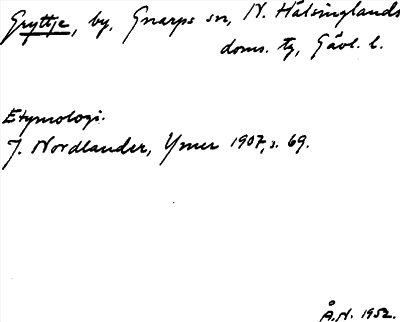 Gryttje, by, Gnarps sn, N. Hälsinglands
doms. tg, Gävl. l.
Etymologi.
J. Nordlander, Ymer 1907, s. 69.
Å.N. 1952.